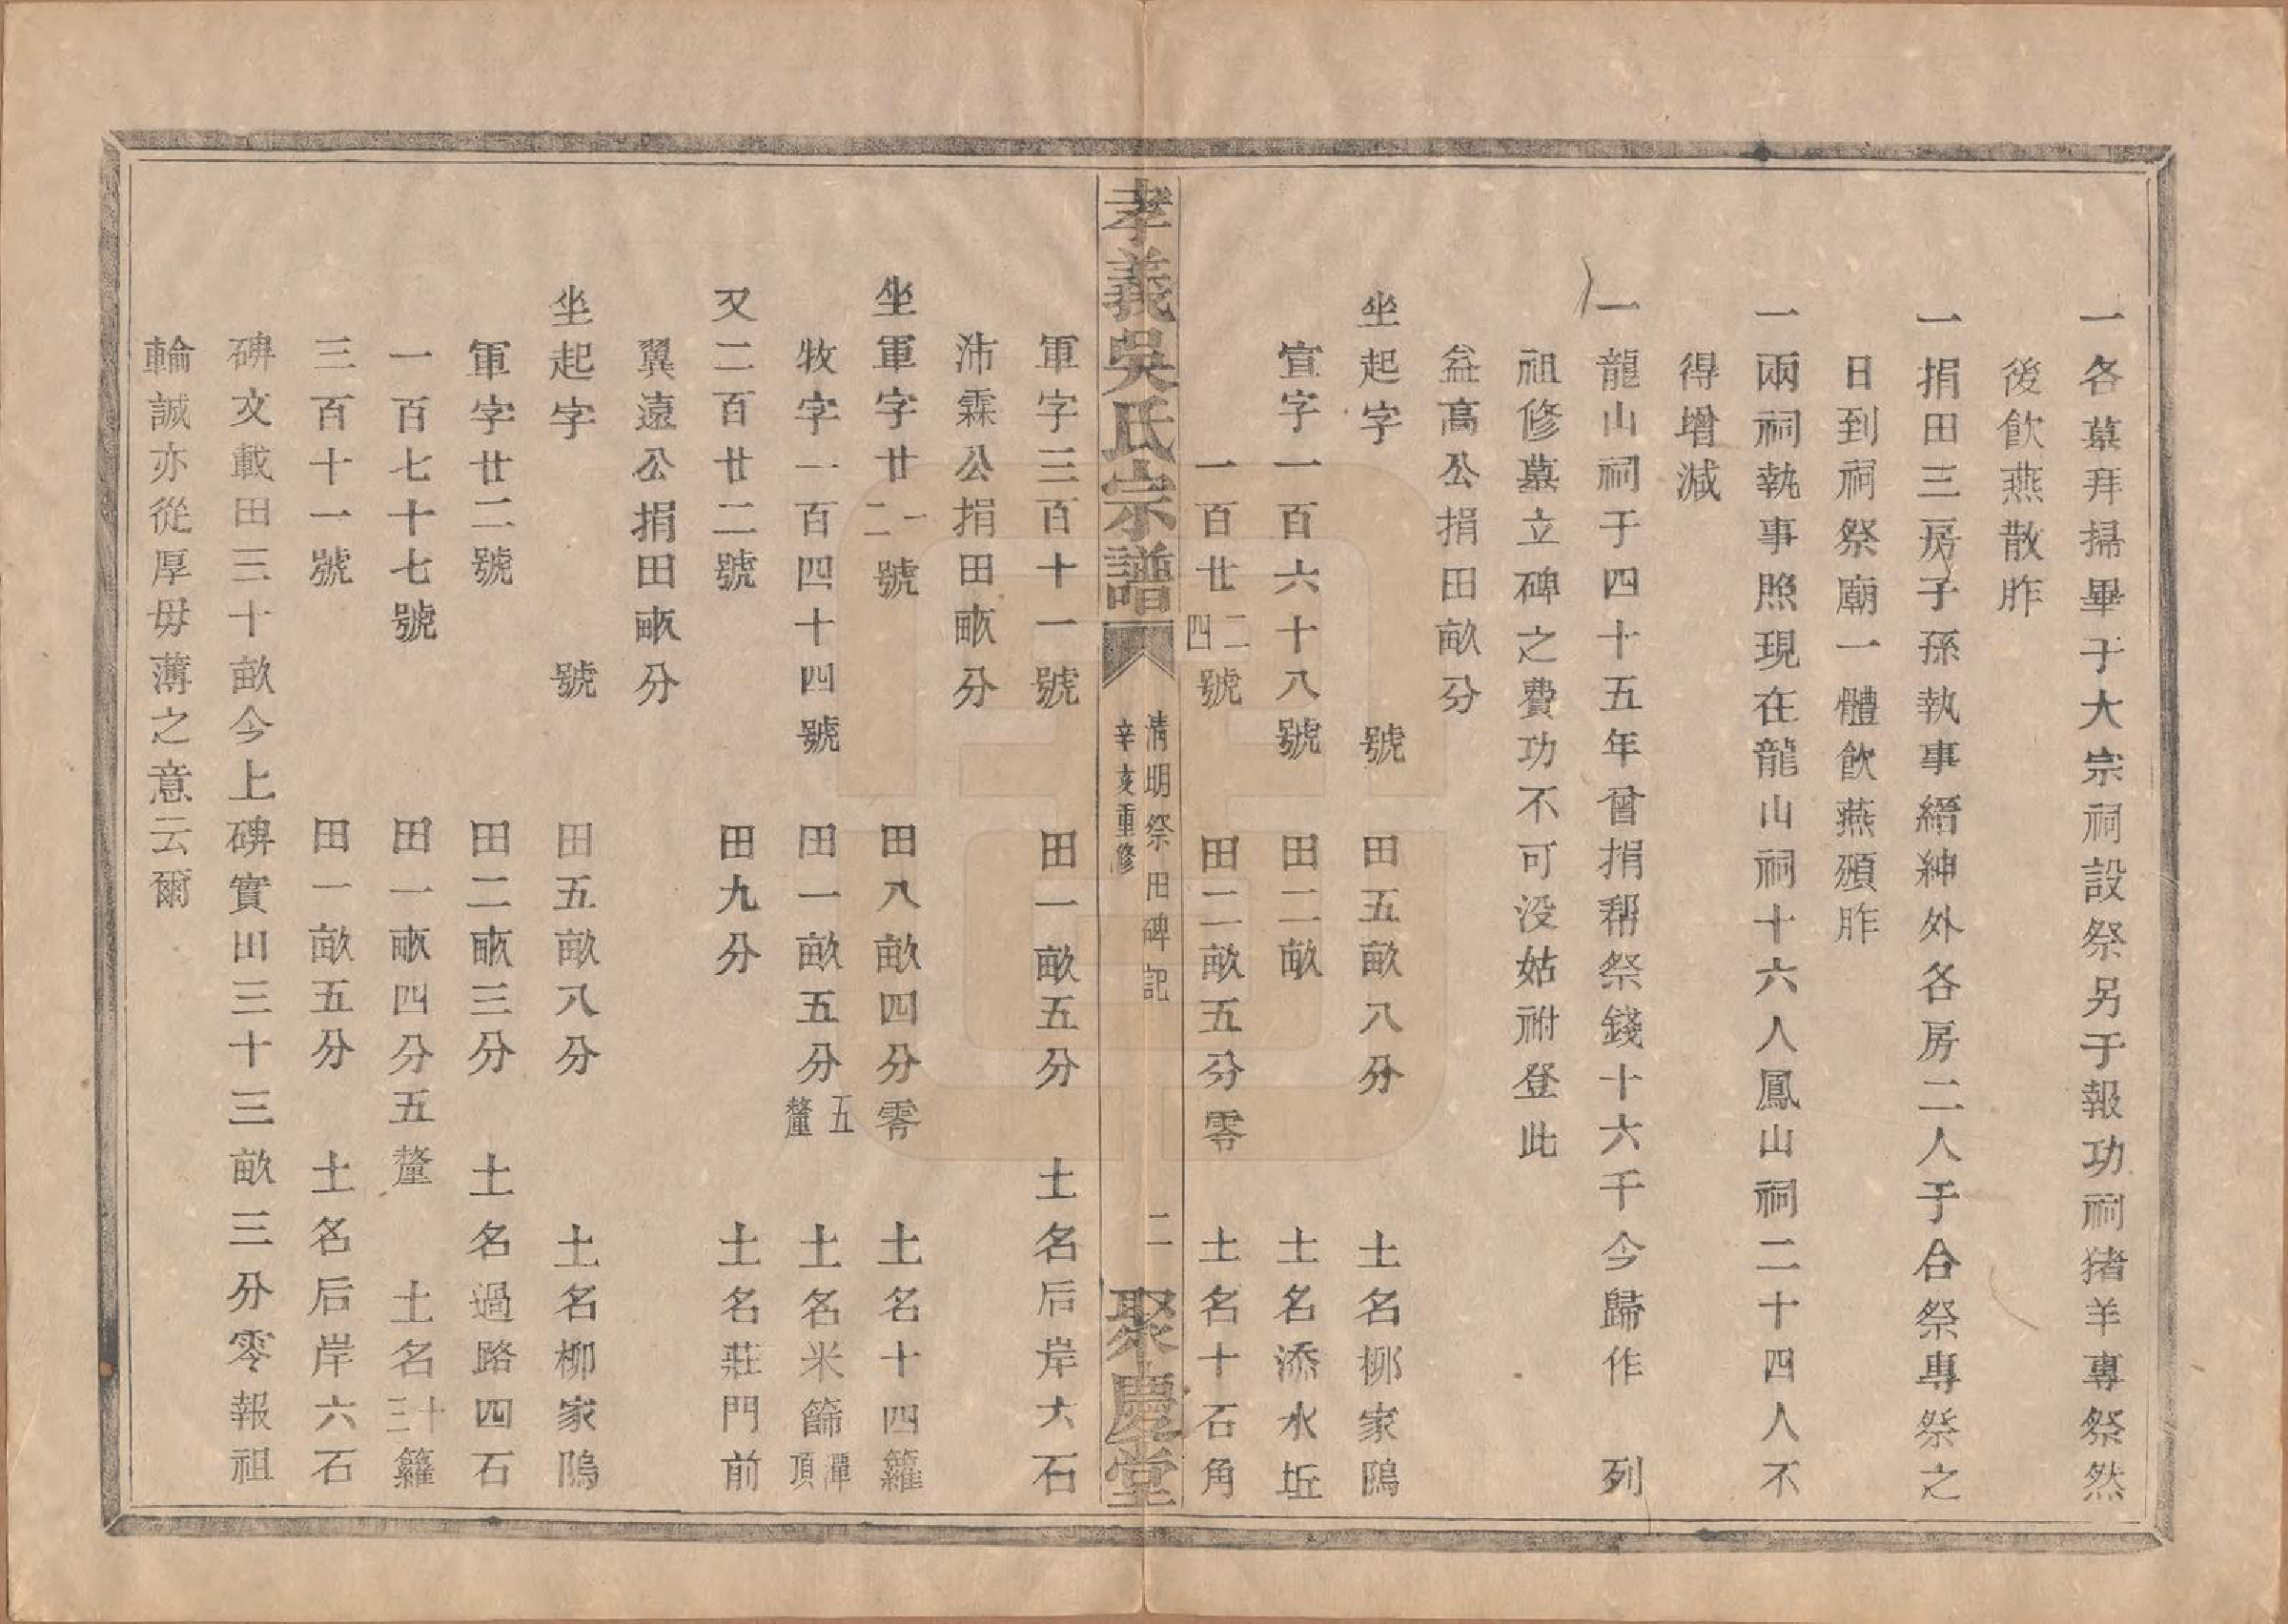 一各墓拜掃畢于大宗祠設祭另于報功祠猪羊專祭然
後飲燕散胙
一捐田三房子孫執事縉紳外各房二人于合祭專祭之
日到祠祭廟一體飲燕頒胙
一兩祠執事照現在龍山祠十六人鳳山祠二十四人不
得增減
一龍山祠于四十五年曾捐帮祭錢十六千今歸作 列
祖修墓立碑之費功不可没姑祔登此
益高公捐田畝分
坐起字 號 田五畝八分 土名柳家隖
宣字一百六十八號 田二畝 土名添水坵
一百廿二四號 田二畝五分零 土名十石角
孝義吳氏宗譜 清明祭田碑記 辛亥重修 二 聚慶堂
軍字三百十一號 田一畝五分 土名后岸六石
沛霖公捐田畝分
坐軍字廿一二號 田八畝四分零 土名十四籮
牧字一百四十四號 田一畝五分五釐 土名米篩潭頂
又二百廿二號 田九分 土名莊門前
翼遠公捐田畝分
坐起字 號 田五畝八分 土名柳家隖
軍字廿二號 田二畝三分 土名過路四石
一百七十七號 田一畝四分五釐 土名十三籮
三百十一號 田一畝五分 土名后岸六石
碑文載田三十畝今上碑實田三十三畝三分零報祖
輸誠亦從厚毋薄之意云爾